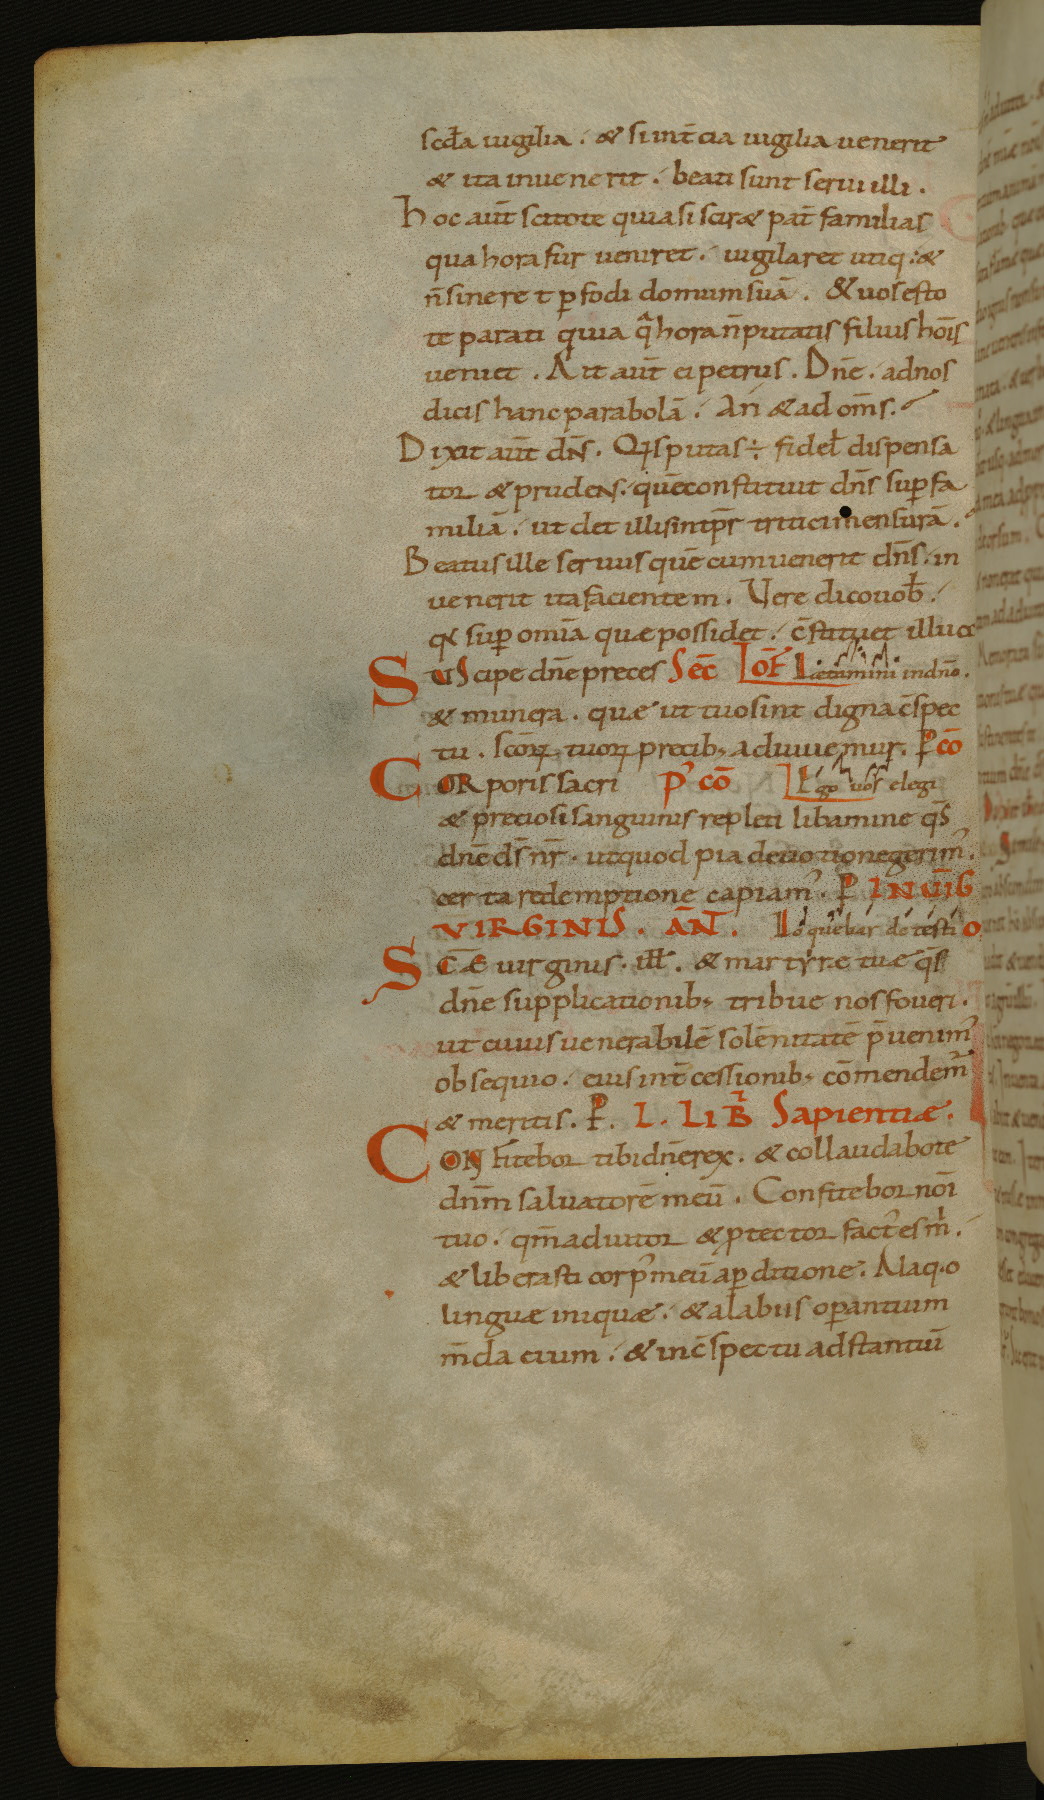 scďa uigilia . & si int̄cia uigilia uenerit
& ita inuenerit . beati sunt serui illi .
Hoc aūt scitote quia si sciræ pat̄ familias
qua hora fur ueniret . uigilaret utiq: &
n̄ sineret ꝑfodi domum suā . & uos esto
te parati quia q̄ hora n̄ putatis filius hoīs
ueniet . Ait aūt ei petrus . Dn̄e . ad nos
dicis hanc parabolā . An & ad om̄s .
Dixit aūt dn̄s . Qis putas ÷ fidel̄ dispensa
tor & prudens . quē constituit dn̄s suꝑ fa
miliā . ut det illis int̄pr̄ tritici mensurā .
Beatus ille seruus quē cum uenerit dn̄s . in
uenerit ita facientem . Vere dico uob̄ .
qđ suꝑ omīa quæ possidet . c̄stituet illū ꝏ
SUScipe dn̄e preces Sec̄ Lōf Lætamini in dn̄o .
& munera . quæ ut tuo sint digna c̄spec
tu . scōꝝ tuoꝝ precib; adiuuemur . P cō
CORporis sacri P' cō Ego uos elegi
& preciosi sanguinis repleti libamine q̄s
dn̄e ds̄ nr̄ . ut quod pia deuotione gerim᾿ .
certa redemptione capiam᾿ . P IN UIG
VIRGINIS . AN̄ . Loquebar de testi o
SCÆ uirginis . ill̄ . & martyræ tuæ q̄s
dn̄e supplicationib; tribue nos foueri .
ut cuius uenerabilē solēnitatē p̄uenim᾿
obsequio . eius int̄cessionib; cōmendem᾿
& meritis . P . L . LIB̄ Sapientiæ .
CONfitebor tibi dn̄e rex . & collaudabo te
dn̄m saluatorē meū . Confitebor noī
tuo . qm̄ adiutor & ꝓtector fact᾿ es m̄ .
& liberasti corp᾿ meū a ꝑditione . A laq.o
linguæ iniquæ . & a labiis oꝑantium
m̄dacium . & in c̄spectu adstantiū